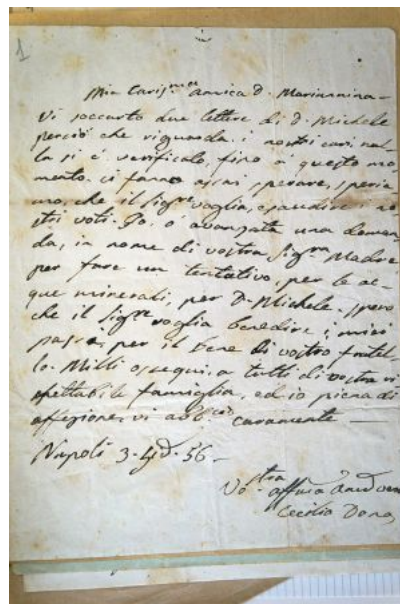 1
Mia Caris.ma amica D. Mariannina –
Vi accarto due lettere di D. Michele
perciò che riguarda i nostri cari, nul-
la si è verificato, fino a questo mo-
mento. ci fanno assai sperare, speria-
mo, che il Sig.re voglia, esaudire i no-
stri voti. Io, ò avanzata una doman-
da, in nome di vostra Sig.ra Madre
per fare un tentativo, per le ac-
que minerali, per D. Michele. spero
che il Sig.re voglia benedire i miei
passi, per il bene di vostro fratel-
lo. Mille ossequi, a tutti di vostra ri
spettabile famiglia, ed io piena di
affezione, vi abb.cio caramente –
Napoli 3. 56 –
Vo.stra affma
Cecilia Dono